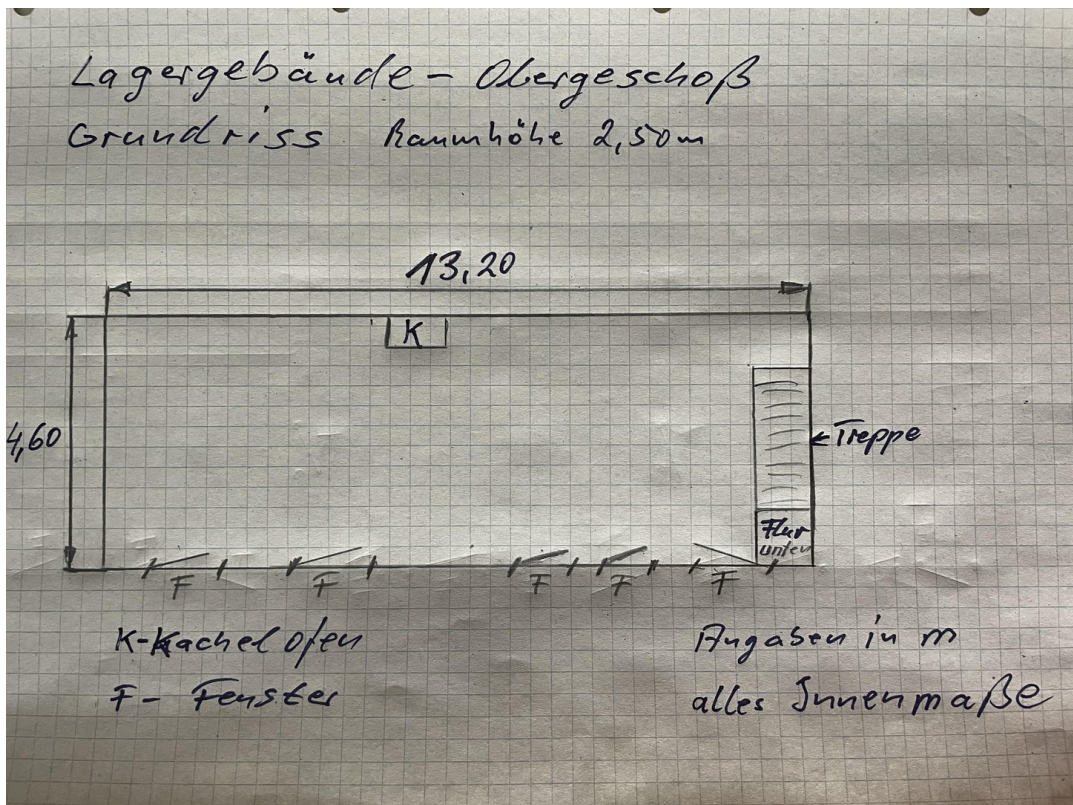 Lagergebäude - Obergeschoß
Grundriss Raumhöhe 2,50m
13,20
K
4,60
Treppe
Flur
unten
F F F F F
K-Kachelofen
F - Fenster
Angaben in m
alles Innenmaße